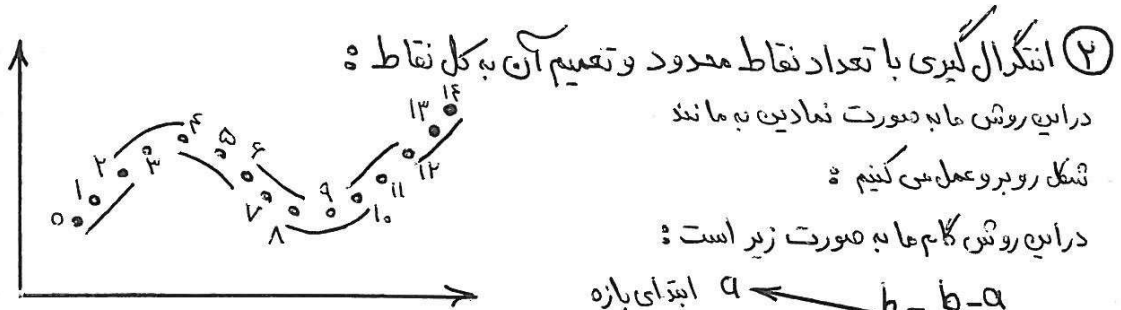 ۲ انتگرال گیری با تعداد نقاط محدود و تعمیم آن به کل نقاط :
در این روش ما به صورت نمادین به مانند
شکل روبرو عمل می کنیم :
در این روش گام ما به صورت زیر است :
h = b-a
a ابتدای بازه
۰ ۱ ۲ ۳ ۴ ۵ ۶ ۷ ۸ ۹ ۱۰ ۱۱ ۱۲ ۱۳ ۱۴